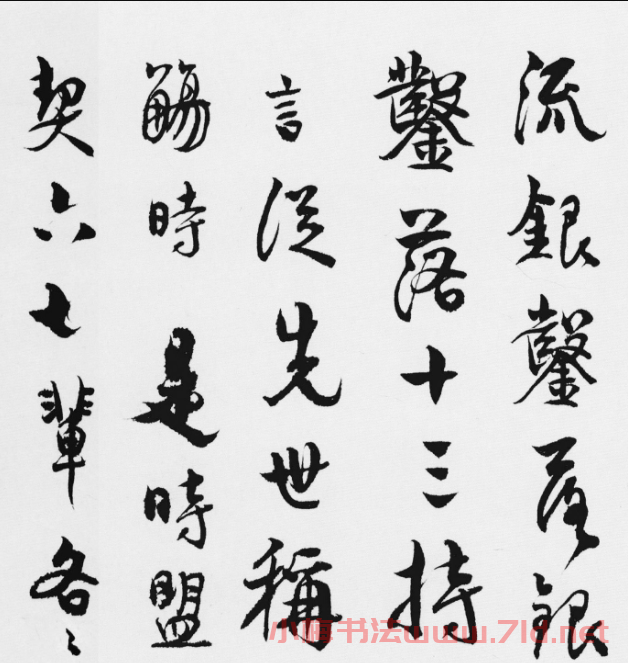 流銀鑿落銀
鑿落十三持
言從先世稱
觴時是時盟
契六七輩各〻
书法www.7ld.net